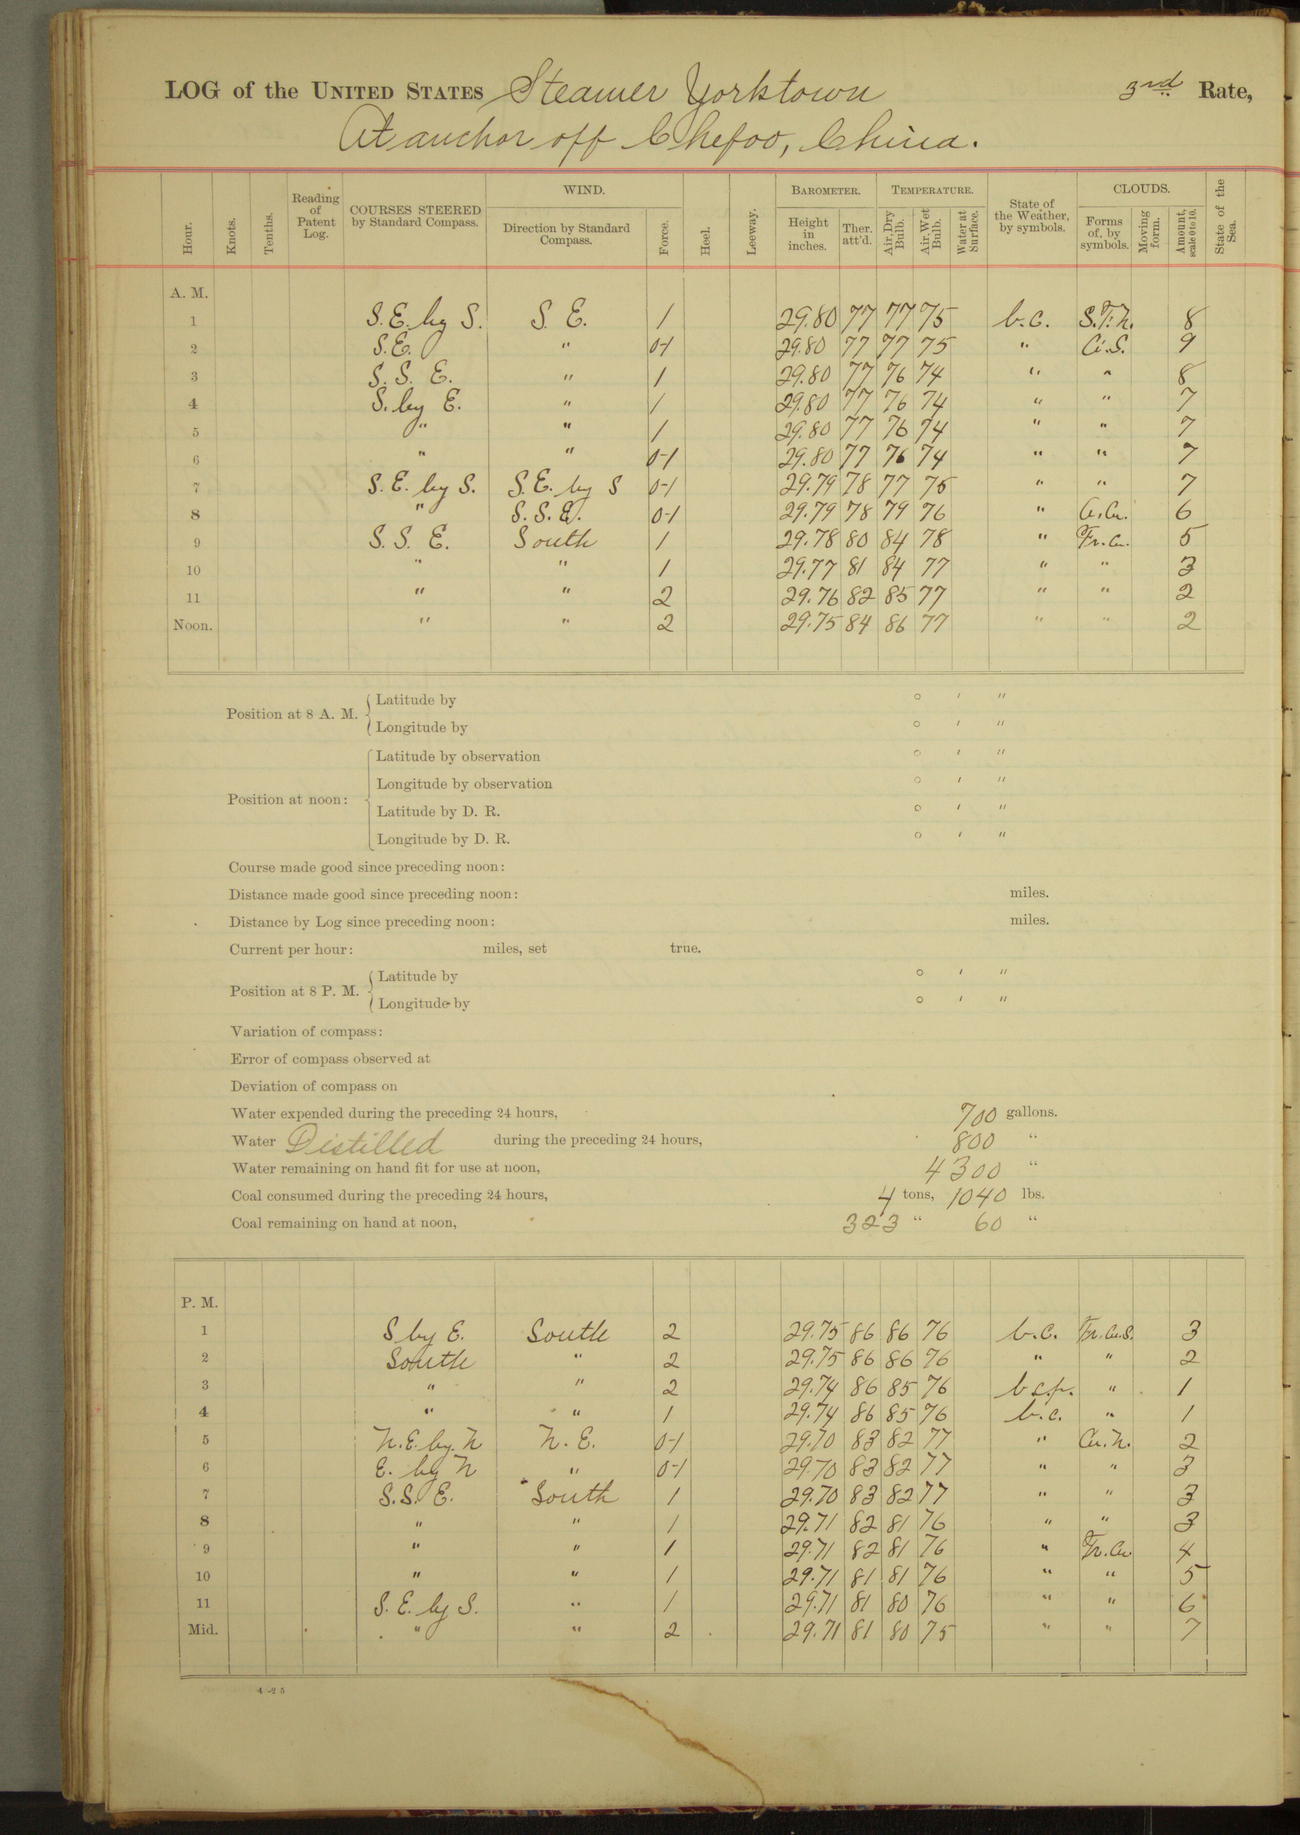 LOG of the UNITED STATES Steamer Yorktown 3rd Rate,
At anchor off Chefoo, China.
Hour. Knots. Tenths. Reading of Patent Log. COURSES STEERED by Standard Compass. WIND. Direction by Standard Compass. Force. Heel. Leeway. BAROMETER. Height in inches. Ther. att'd. TEMPERATURE. Air, Dry Bulb. Air, Wet Bulb. Water at Surface. State of the Weather, by symbols. CLOUDS. Forms of, by symbols. Moving form. Amount, scale 0 to 10. State of the Sea.
A. M.
1 S.E. by S. S. E. 1 29.80 77 77 75 b.c. 8
2 S.E. " 0-1 29.80 77 77 75 " Ci.S. 9
3 S. S. E. " 1 29.80 77 76 74 " " 8
4 S. by E. " 1 29.80 77 76 74 " " 7
5 " " 1 29.80 77 76 74 " " 7
6 " " 0-1 29.80 77 76 74 " " 7
7 S. E. by S. S.E. by S 0-1 29.79 78 77 75 " " 7
8 " S. S. E. 0-1 29.79 78 79 76 " 6
9 S. S. E. South 1 29.78 80 84 78 " Fr.Cu. 5
10 " " 1 29.77 81 84 77 " " 3
11 " " 2 29.76 82 85 77 " " 2
Noon. " " 2 29.75 84 86 77 " " 2
Position at 8 A. M. Latitude by ° ' "
Longitude by ° ' "
Position at noon: Latitude by observation ° ' "
Longitude by observation ° ' "
Latitude by D. R. ° ' "
Longitude by D. R. ° ' "
Course made good since preceding noon:
Distance made good since preceding noon: miles.
Distance by Log since preceding noon: miles.
Current per hour: miles, set true.
Position at 8 P. M. Latitude by ° ' "
Longitude by ° ' "
Variation of compass:
Error of compass observed at
Deviation of compass on
Water expended during the preceding 24 hours, 700 gallons.
Water Distilled during the preceding 24 hours, 800 "
Water remaining on hand fit for use at noon, 4300 "
Coal consumed during the preceding 24 hours, 4 tons, 1040 lbs.
Coal remaining on hand at noon, 323 " 60 "
P. M.
1 S by E. South 2 29.75 86 86 76 b.c. Fr.Cu.S. 3
2 South " 2 29.75 86 86 76 " " 2
3 " " 2 29.74 86 85 76 b.c.p. " 1
4 " " 1 29.74 86 85 76 b.c. " 1
5 N.E. by N N. E. 0-1 29.70 83 82 77 " Cu.N. 2
6 E. by N " 0-1 29.70 83 82 77 " " 3
7 S.S. E. South 1 29.70 83 82 77 " " 3
8 " " 1 29.71 82 81 76 " " 3
9 " " 1 29.71 82 81 76 " Fr.Cu 4
10 " " 1 29.71 81 81 76 " " 5
11 S. E. by S. " 1 29.71 81 80 76 " " 6
Mid. " " 2 29.71 81 80 75 " " 7
4-25